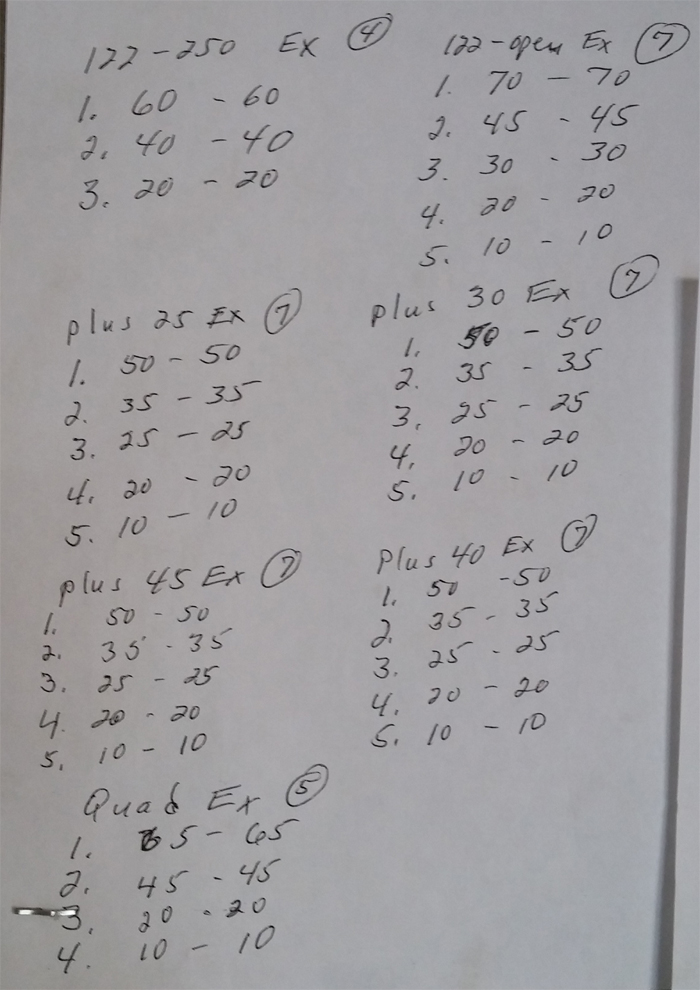 122-250 Ex 4
1. 60 - 60
2. 40 - 40
3. 20 - 20
122-open Ex 7
1. 70 - 70
2. 45 - 45
3. 30 - 30
4. 20 - 20
5. 10 - 10
plus 25 Ex 7
1. 50 - 50
2. 35 - 35
3. 25 - 25
4. 20 - 20
5. 10 - 10
plus 30 Ex 7
1. 50 - 50
2. 35 - 35
3. 25 - 25
4. 20 - 20
5. 10 - 10
plus 45 Ex 7
1. 50 - 50
2. 35 - 35
3. 25 - 25
4. 20 - 20
5. 10 - 10
plus 40 Ex 7
1. 50 - 50
2. 35 - 35
3. 25 - 25
4. 20 - 20
5. 10 - 10
Quad Ex 5
1. 65 - 65
2. 45 - 45
3. 20 - 20
4. 10 - 10